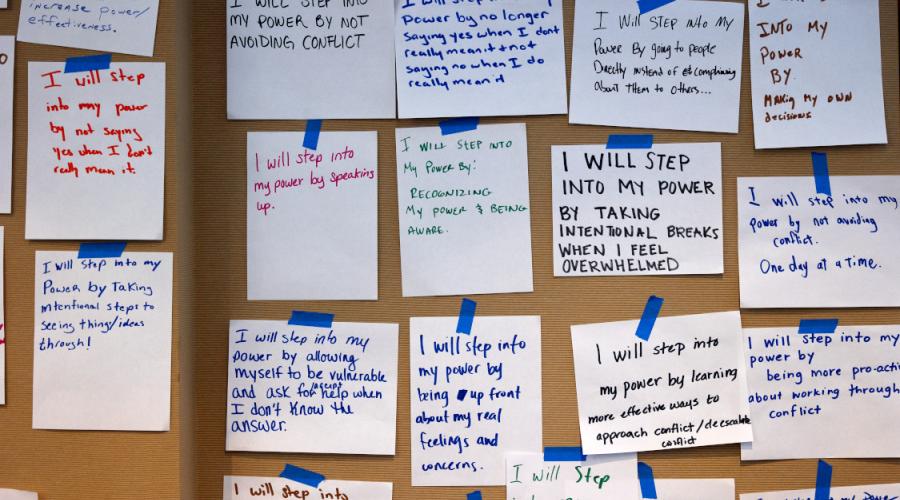 increase power/
effectiveness.
I will step
into my power
by not saying
yes when I don't
really mean it.
I will step into my
Power by Taking
intentional steps to
seeing things/ideas
through!
I WILL STEP INTO
MY POWER BY NOT
AVOIDING CONFLICT
I will step into my
Power by no longer
saying yes when I dont
really mean it + not
saying no when I do
really mean'd
I Will Step into My
Power By going to people
Directly instead of complaining
About Them to others...
I will step
INTO My
Power
By.
Making My own
decisions
I will step into
my power by speaking
up.
I WILL STEP INTO
My Power By:
RECOGNIZING
My power & BEING
AWARE.
I WILL STEP
INTO MY POWER
BY TAKING
INTENTIONAL BREAKS
WHEN I FEEL
OVERWHELMED
I will step into my
power by not avoiding
conflict.
One day at a time.
I will step into my
power by allowing
myself to be vulnerable
and ask for/accept help when
I don't know the
answer.
I will step into
my power by
being up front
about my real
feelings and
concerns.
I will step into
my power by learning
more effective ways to
approach conflict/deescalate
conflict
I will step into my
power by
being more pro-acti
about working through
conflict
I will step into
I will Step